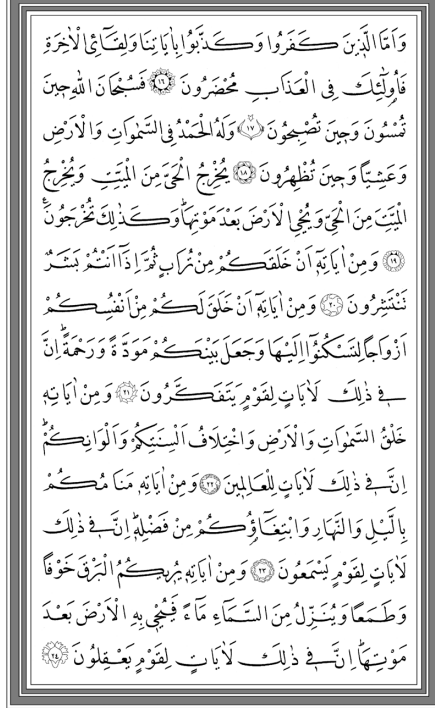 وَاَمَّا الَّذٖينَ كَفَرُوا وَكَذَّبُوا بِاٰيَاتِنَا وَلِقَٓائِ الْاٰخِرَةِ
فَاُولٰٓئِكَ فِى الْعَذَابِ مُحْضَرُونَ ﴿١٦﴾ فَسُبْحَانَ اللّٰهِ حٖينَ
تُمْسُونَ وَحٖينَ تُصْبِحُونَ ﴿١٧﴾ وَلَهُ الْحَمْدُ فِى السَّمٰوَاتِ وَالْاَرْضِ
وَعَشِيًّا وَحٖينَ تُظْهِرُونَ ﴿١٨﴾ يُخْرِجُ الْحَىَّ مِنَ الْمَيِّتِ وَيُخْرِجُ
الْمَيِّتَ مِنَ الْحَىِّ وَيُحْيِ الْاَرْضَ بَعْدَ مَوْتِهَاؕ وَكَذٰلِكَ تُخْرَجُونَ
﴿١٩﴾ وَمِنْ اٰيَاتِهٖٓ اَنْ خَلَقَكُمْ مِنْ تُرَابٍ ثُمَّ اِذَٓا اَنْتُمْ بَشَرٌ
تَنْتَشِرُونَ ﴿٢٠﴾ وَمِنْ اٰيَاتِهٖٓ اَنْ خَلَقَ لَكُمْ مِنْ اَنْفُسِكُمْ
اَزْوَاجًا لِتَسْكُنُٓوا اِلَيْهَا وَجَعَلَ بَيْنَكُمْ مَوَدَّةً وَرَحْمَةًؕ اِنَّ
فٖى ذٰلِكَ لَاٰيَاتٍ لِقَوْمٍ يَتَفَكَّرُونَ ﴿٢١﴾ وَمِنْ اٰيَاتِهٖ
خَلْقُ السَّمٰوَاتِ وَالْاَرْضِ وَاخْتِلَافُ اَلْسِنَتِكُمْ وَاَلْوَانِكُمْؕ
اِنَّ فٖى ذٰلِكَ لَاٰيَاتٍ لِلْعَالِمٖينَ ﴿٢٢﴾ وَمِنْ اٰيَاتِهٖ مَنَامُكُمْ
بِالَّيْلِ وَالنَّهَارِ وَابْتِغَٓاؤُكُمْ مِنْ فَضْلِهٖؕ اِنَّ فٖى ذٰلِكَ
لَاٰيَاتٍ لِقَوْمٍ يَسْمَعُونَ ﴿٢٣﴾ وَمِنْ اٰيَاتِهٖ يُرٖيكُمُ الْبَرْقَ خَوْفًا
وَطَمَعًا وَيُنَزِّلُ مِنَ السَّمَٓاءِ مَٓاءً فَيُحْيٖ بِهِ الْاَرْضَ بَعْدَ
مَوْتِهَاؕ اِنَّ فٖى ذٰلِكَ لَاٰيَاتٍ لِقَوْمٍ يَعْقِلُونَ ﴿٢٤﴾